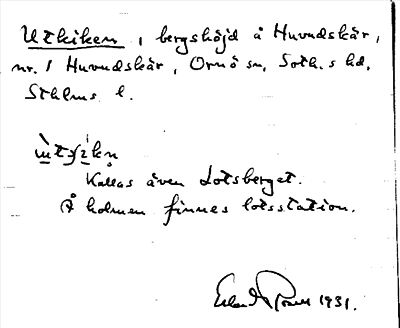 Utkiken, bergshöjd å Huvudskär,
nr. 1 Huvudskär, Ornö sn, Soth.s hd.
Sthlms l.
Kallas även Lotsberget.
Å holmen finnes lotsstation.
1931.